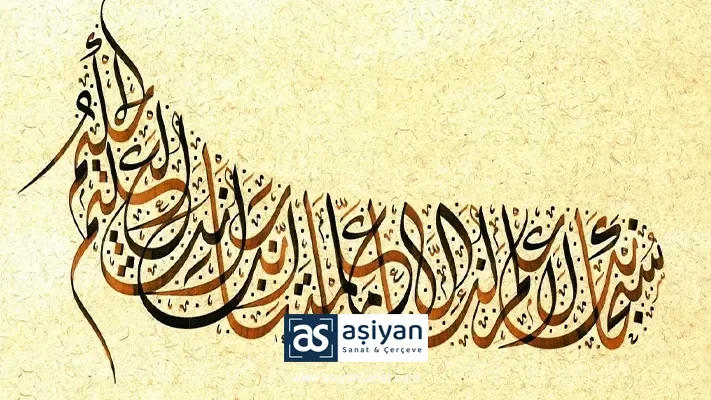 سبحانك لا علم لنا إلا ما علمتنا إنك أنت العليم الحكيم
as aşiyan
Sanat & Çerçeve